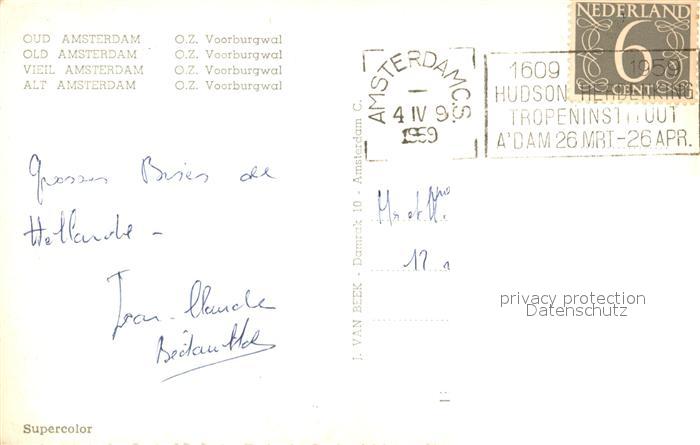 OUD AMSTERDAM O.Z. Voorburgwal
OLD AMSTERDAM O.Z. Voorburgwal
VIEIL AMSTERDAM O.Z. Voorburgwal
ALT AMSTERDAM O.Z. Voorburgwal
NEDERLAND
6
CENT
AMSTERDAM C.S.
4 IV 9
1959
1609 1959
HUDSON HERDENKING
TROPENINSTITUUT
A'DAM 26 MRT.-26 APR.
Grosses Bises de
Hollande -
Jean-Claude
J. VAN BEEK - Damrak 10 - Amsterdam C.
Mr et M.
12
privacy protection
Datenschutz
Supercolor